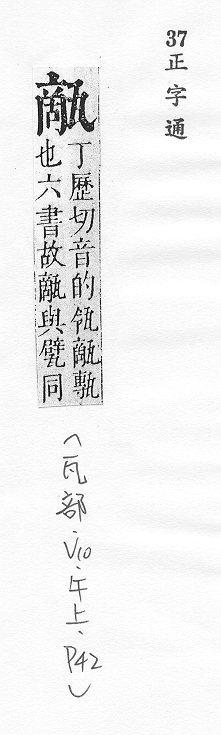 37 正字通
甋
丁歷切音的瓴甋甎
也六書故甋與甓同
(瓦部．V10．午上．P42)